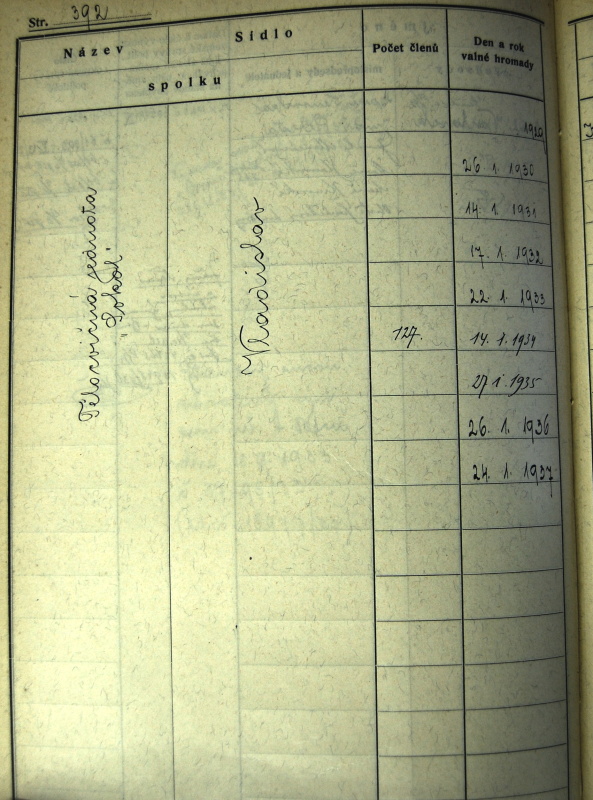 Str. 392
Název
Sídlo
spolku
Počet členů
Den a rok
valné hromady
Tělocvičná jednota
"Sokol"
Vladislav
1929
26 1. 1930
14. 1. 1931
17. 1. 1932
22. 1. 1933
127. 14. 1. 1934
27 1. 1935
26. 1. 1936
24. 1. 1937